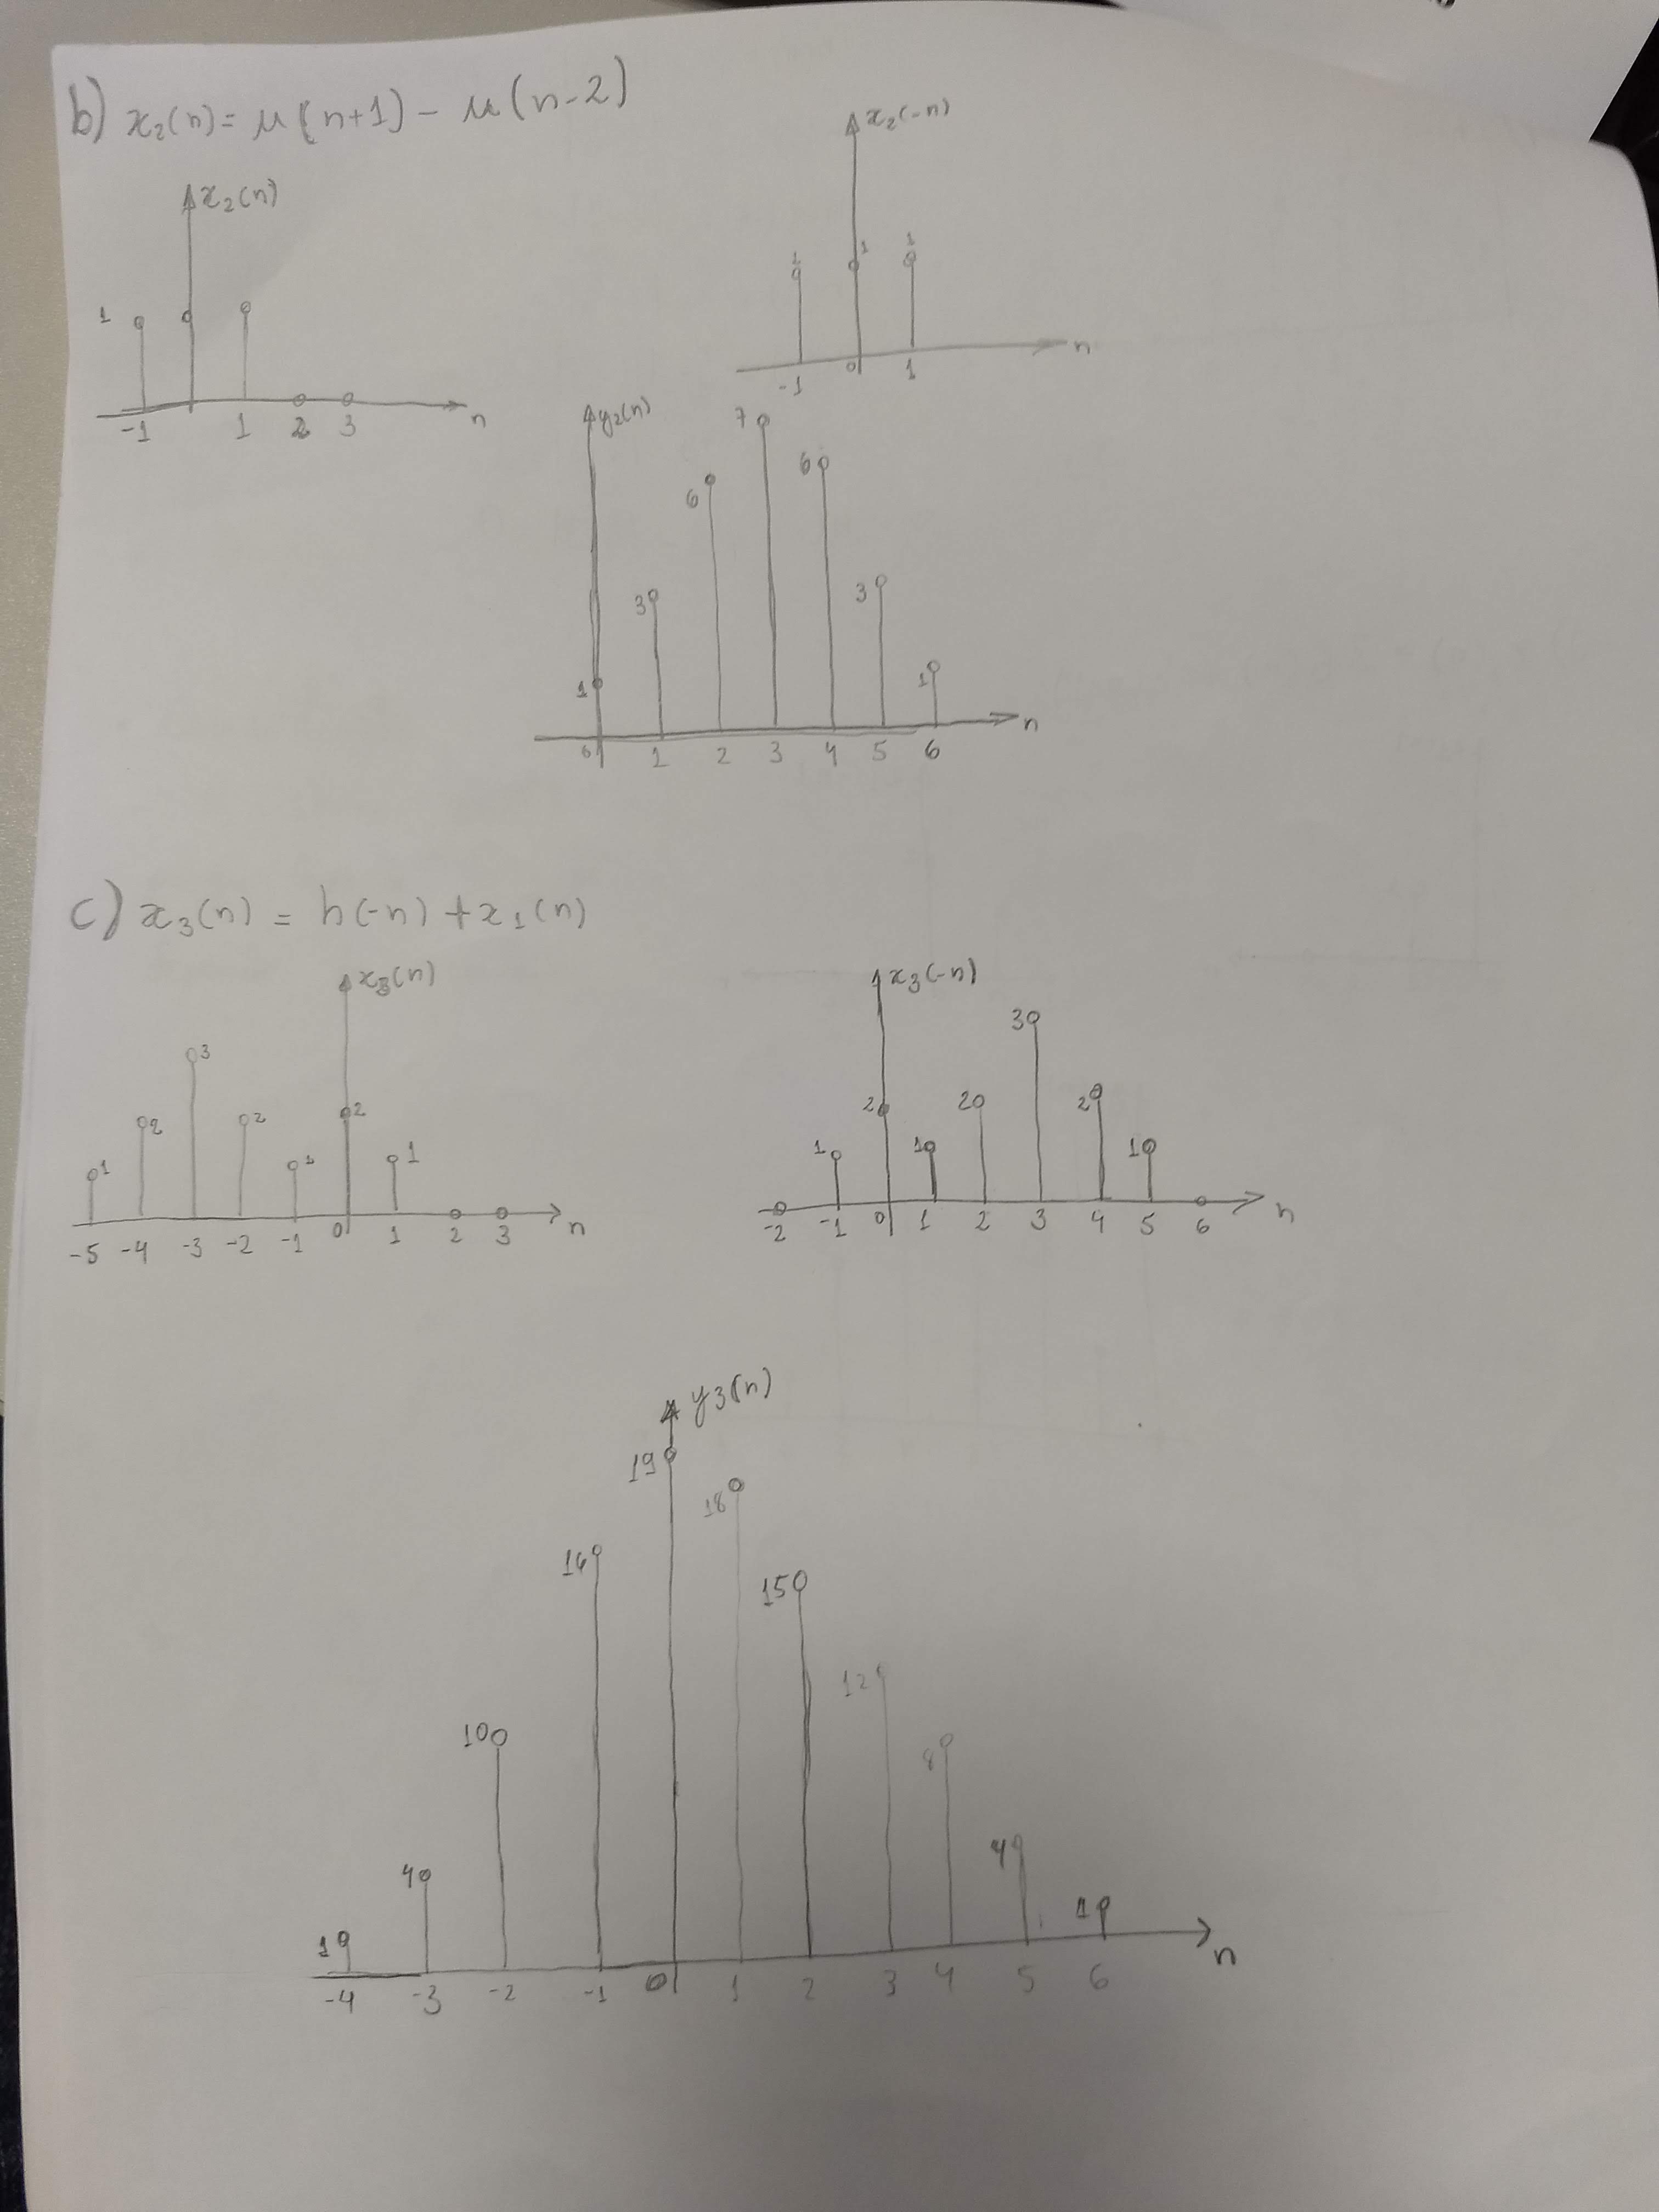 b) x₂(n) = μ(n+1) - μ(n-2)
x₂(n)
1
-1 1 2 3 n
x₂(-n)
1 1 1
-1 0 1 n
y₂(n)
1 3 6 7 6 3 1
0 1 2 3 4 5 6 n
c) x₃(n) = h(-n) + x₁(n)
x₃(n)
1 2 3 2 1 2 1
-5 -4 -3 -2 -1 0 1 2 3 n
x₃(-n)
1 2 1 2 3 2 1
-2 -1 0 1 2 3 4 5 6 n
y₃(n)
1 4 10 16 19 18 15 12 8 4 1
-4 -3 -2 -1 0 1 2 3 4 5 6 n